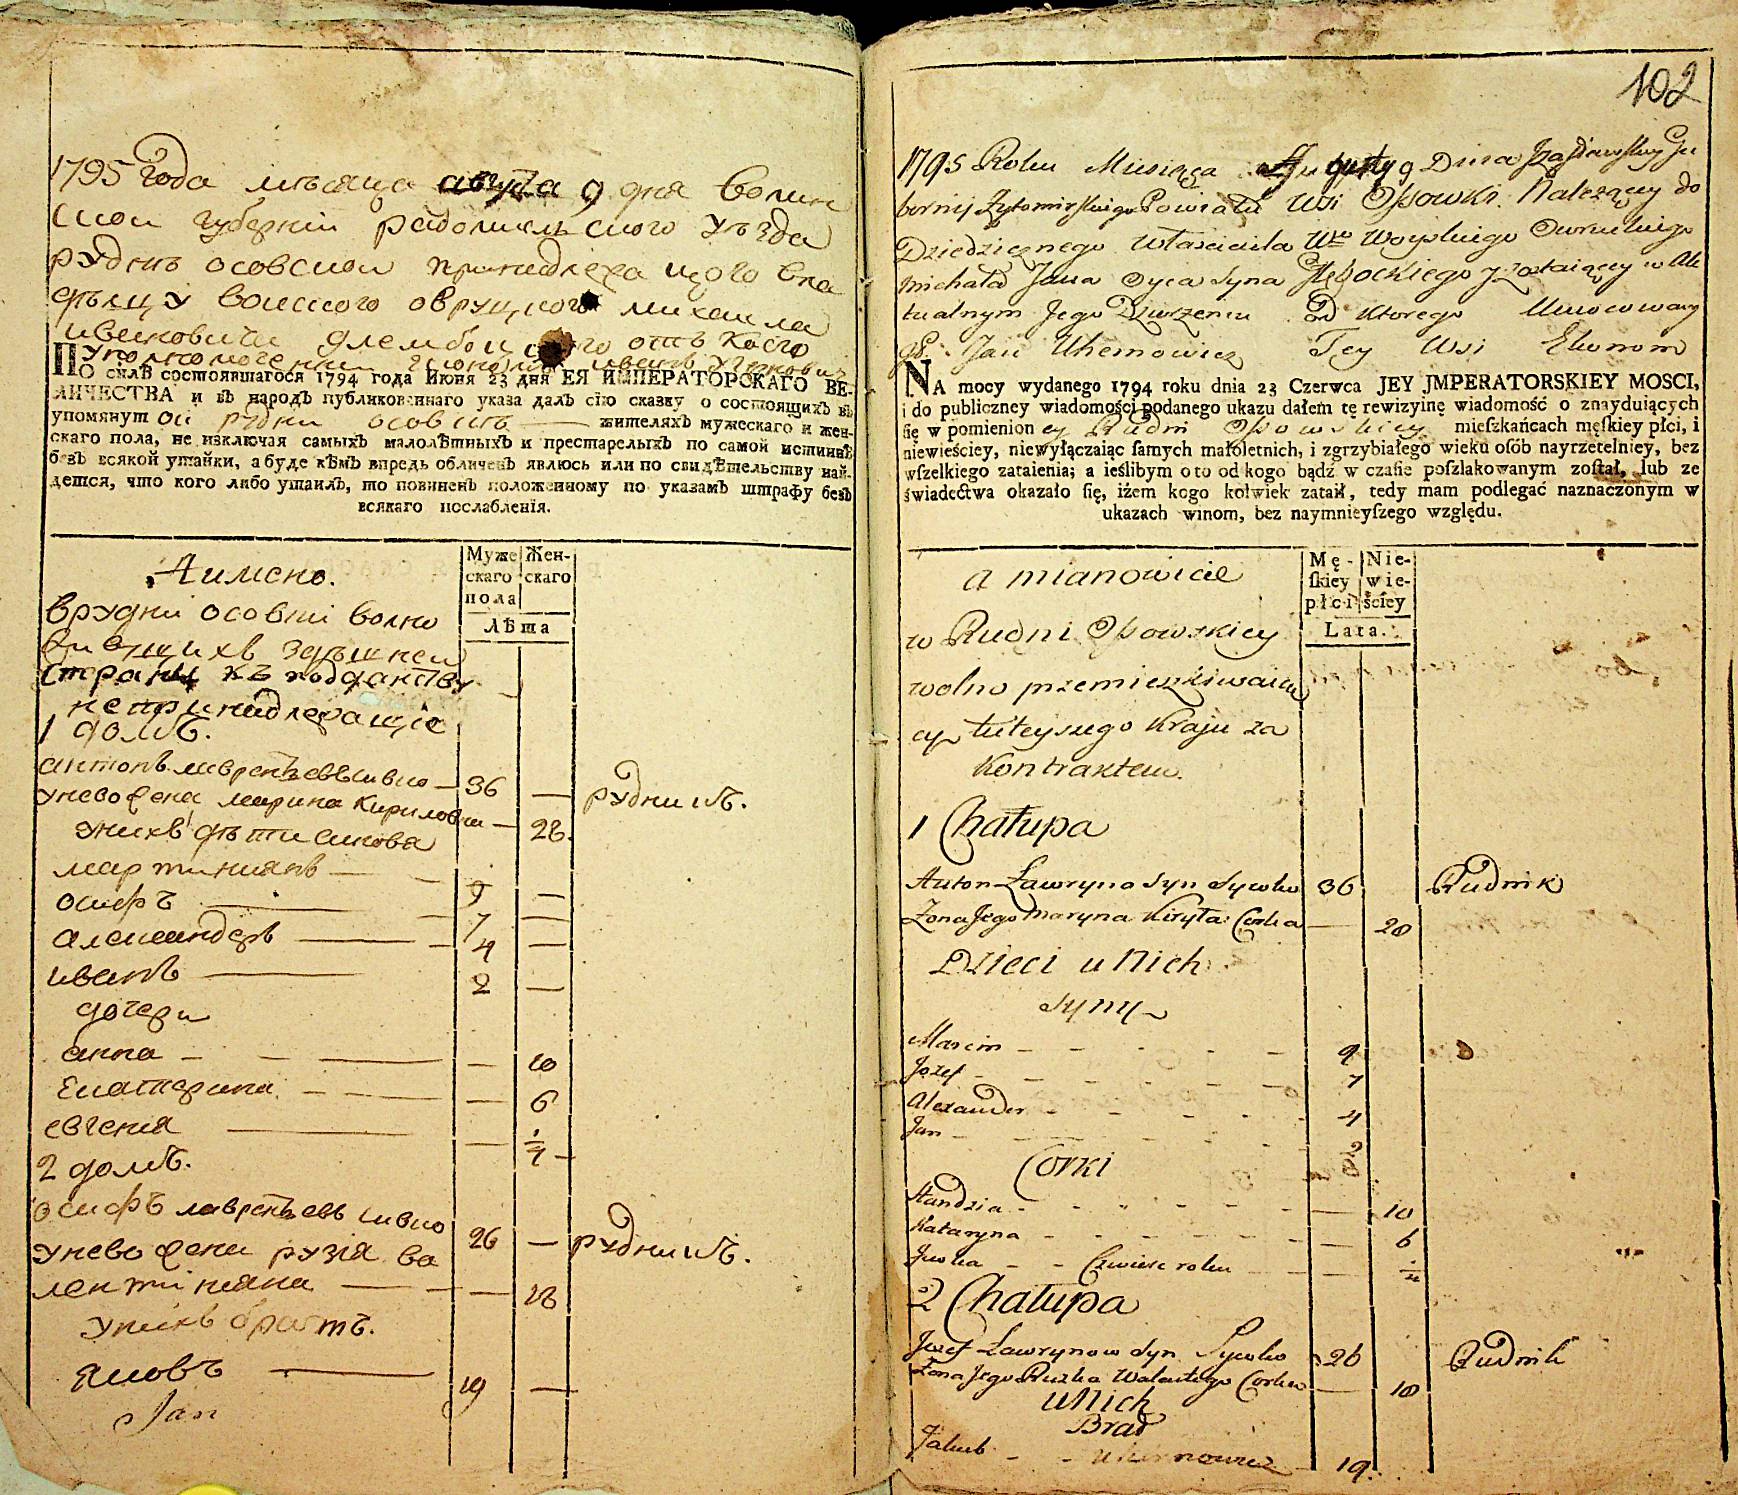 1795 года мѣсяца августа 9 дня волин
ской губерніи радомисльского уѣзда
рудни осовской принадлежащого вла
дѣлцу войского овруцкого михаила
ивановича глембоцкого отъ коего
уполномоченни економъ иванъ
ПО силѣ состоявшагося 1794 года Июня 23 дня ЕЯ ИМПЕРАТОРСКАГО ВЕ-
ЛИЧЕСТВА и въ народъ публикованнаго указа далъ сію сказку о состоящихъ въ
упомянутой рудни осовскъ жителяхъ мужескаго и жен-
скаго пола, не изключая самыхъ малолѣтныхъ и престарелыхъ по самой истиннѣ
безъ всякой утайки, а буде кѣмъ впредь обличенъ явлюсь или по свидѣтельству най-
дется, что кого либо утаилъ, то повиненъ положенному по указамъ штрафу безъ
всякаго послабленія.
Муже Жен-
скаго скаго
пола
Лѣта
Аимено.
врудни осовкі волно
живущихв здѣшней
страны къ подданству
непринадлежащіе
1 домъ.
антонъ лаврентьевъ сивко — 36 — рудникъ.
унево жена марина кирилова — 28.
унихв дѣти синова
мартинианъ — 9 —
осифъ — 7 —
александеръ — 4 —
иванъ — 2 —
дочери
анна — 10
екатерина — 6
евгения — 1/4
2 домъ.
осифъ лаврентьевъ сивко 26 — рудникъ.
унево жена рузія ва
лентініяна — 18
унихв братъ.
яковъ — 19 —
Jan
102
1795 Roku Miesiąca Augusta 9 Dnia Izasławskiey Gu
bernij Żytomirskiego Powiatu Wsi Osowki Należącey do
Dziedzicznego Właściciela Wo Woyskiego Owruckiego
Michała Jana Oyca Syna Głębockiego y zostaiącey w Ak
tualnym Jego Dzierżeniu Od Ktorego Umocowany
Jan Uhernowicz Tey Wsi Ekonom
NA mocy wydanego 1794 roku dnia 23 Czerwca JEY JMPERATORSKIEY MOSCI,
i do publiczney wiadomości podanego ukazu dałem tę rewizyinę wiadomość o znayduiących
się w pomienioney Rudni Osowskiey mieſzkańcach męſkiey płci, i
niewieściey, niewyłączaiąc ſamych małoletnich, i zgrzybiałego wieku oſób nayrzetelniey, bez
wſzelkiego zataienia; a ieślibym o to od kogo bądź w czaſie poſzlakowanym zoſtał, lub ze
świadectwa okazało ſię, iżem kogo kolwiek zataił, tedy mam podlegać naznaczonym w
ukazach winom, bez naymnieyſzego względu.
Mę- Nie-
ſkiey wie-
płci ściey
Lata.
a mianowicie
w Rudni Osowskiey
wolno przemieszkiwaią
cy tuteyszego Kraju za
Kontraktem.
1 Chałupa
Anton Ławryna Syn Sywko 36 Rudnik
Żona Jego Maryna Kiryła Corka — 28
Dzieci u Nich
Syny
Marcin - - - 9
Jozef - - - 7
Alexander - - - 4
Jan - - - 2
Corki
Handzia - - - 10
Kataryna - - - 6
Juwka - - Czwierć roku — 1/4
2 Chałupa
Jozef Ławrynow Syn Sywko 26 Rudnik
Żona Jego Ruzka Walentego Corka — 18
U Nich
Brat
Jakub - - 19.
Uhernowicz